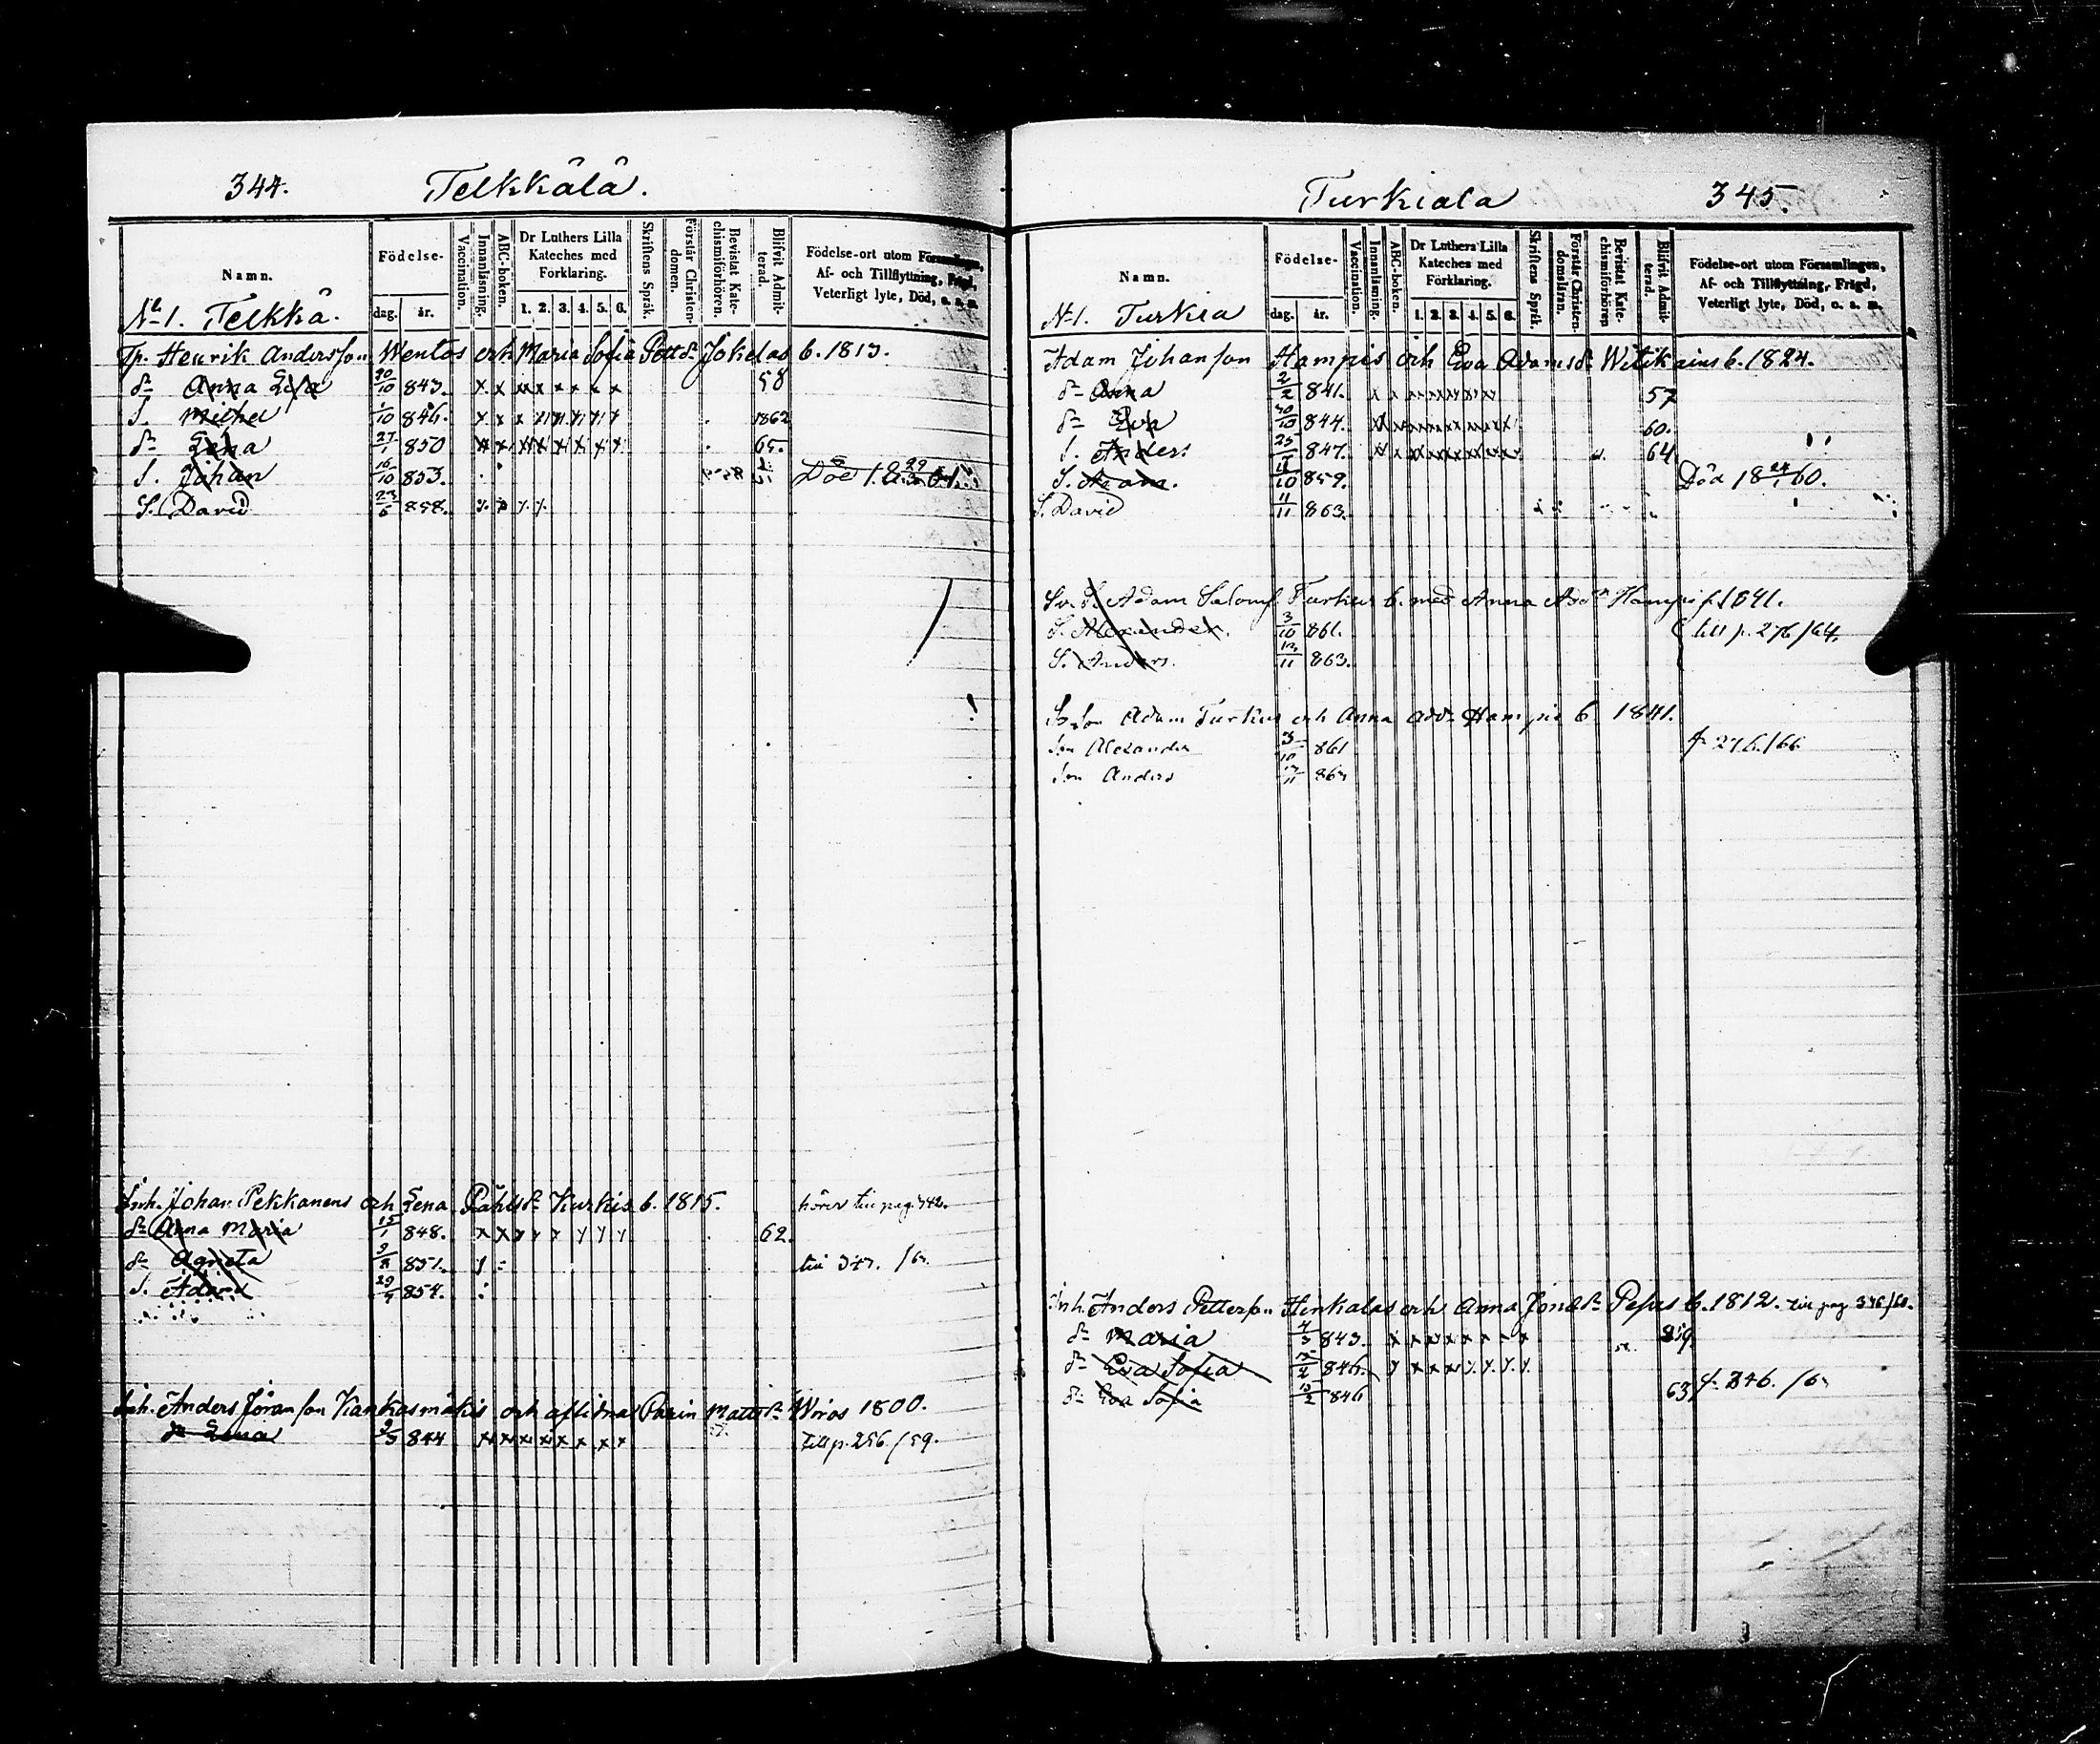 344. Telkkälä.
Namn. Födelse- dag. år. Vaccination. Innanläsning. ABC-boken. Dr Luthers Lilla Kateches med Förklaring. 1. 2. 3. 4. 5. 6. Skriftens Språk. Förstår Christendomen. Bevistat Katechismiförhören. Blifvit Admitterad. Födelse-ort utom Församlingen, Af- och Tillflyttning, Frägd, Veterligt lyte, Död, o. s. m.
No 1. Telkkä.
Tp. Henrik Andersson Wentos och Maria Sofia Pettdr Jokelas b. 1813.
dr Anna Lisa 20/10 843. x x x x x x x x 58
S. Michel 1/10 846. x x x 1862
dr Lena 27/1 850 x x x x x x x x 65.
S. Johan 16/10 853. Död 18 29/3 61.
S. David 23/6 858. x x x x
Inh. Johan Pekkanens och Lena Påhlsdr Kurkis b. 1815. hörer till pag. 342.
dr Anna Maria 15/1 848. x x y y y y y y 62.
dr Agneta 9/2 851. y till
S. Adam 29/9 854.
Inh. Anders Jöransson Kankasmäkis och aflidna Karin Mattsdr Wiros 1800.
dr Lena 9/3 844 x x x x x x x x Till p. 256./59.
Turkiala 345.
Namn. Födelse- dag. år. Vaccination. Innanläsning. ABC-boken. Dr Luthers Lilla Kateches med Förklaring. 1. 2. 3. 4. 5. 6. Skriftens Språk. Förstår Christendomsläran. Bevistat Katechismiförhören Blifvit Admitterad. Födelse-ort utom Församlingen, Af- och Tillflyttning, Frägd, Veterligt lyte, Död, o. s. m.
No 1. Turkia
Adam Johansson Hampis och Eva Adamsdr Witikains b. 1824.
dr Anna 2/2 841. x x x x x x x x 57
dr Eva 30/10 844. x x x x x x x x 60.
S. Anders 847. x x x x x x x x 64
S. Adam. 859. Död 18 24/1 60.
S. David 11/11 863.
Adam Saloms. Turkus b. med Anna Addr Hampi f. 1841.
S. Alexander. 3/10 861. till p. 276/64.
S. Anders. 13/11 863.
Son Adam Turkus och Anna Addr Hampis b. 1841.
Son Alexander 3/10 861 fr 276./66
Son Anders 13/11 863
Inh. Anders Pettersson Hinkalas och Anna Jönsdr b. 1812. till pag 346/60.
dr Maria 4/3 843. x x x x x x x x 859.
dr Eva Sofia 846. y x x x y y y y
dr Eva Sofia 846 63 fr 346.